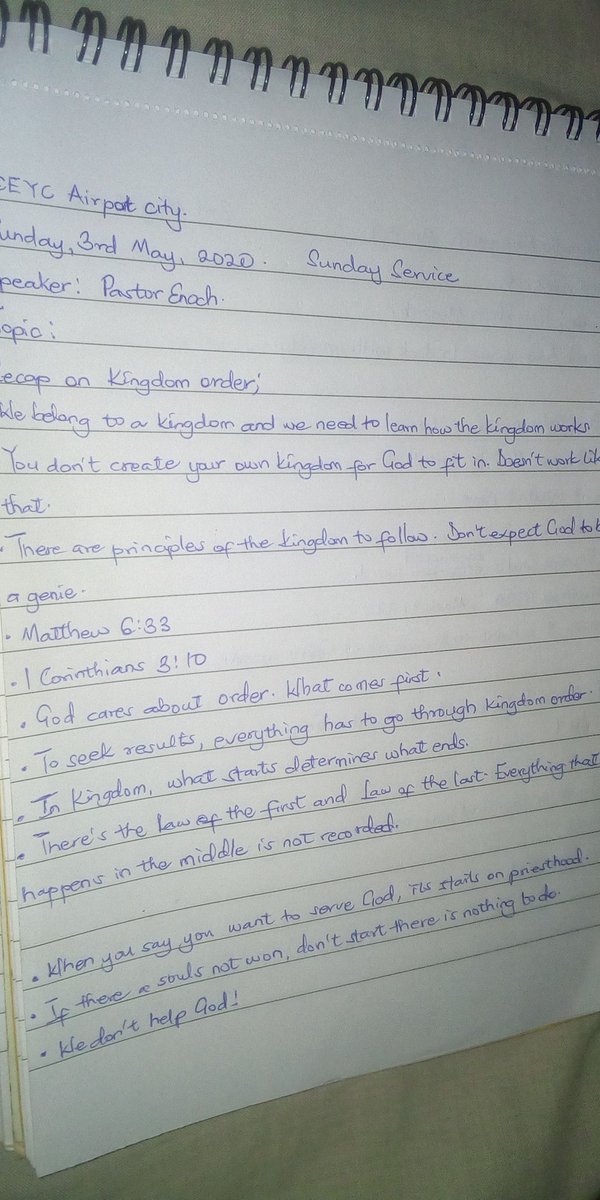 CEYC Airport city.
unday, 3rd May, 2020. Sunday Service
peaker: Pastor Enoch.
opic:
ecap on Kingdom order;
We belong to a kingdom and we need to learn how the kingdom works
You don't create your own kingdom for God to fit in. Doesn't work lik
that.
• There are principles of the kingdom to follow. Don't expect God to b
a genie.
• Matthew 6:33
• 1 Corinthians 3:10
• God cares about order. What comes first.
• To seek results, everything has to go through kingdom order.
• In Kingdom, what starts determines what ends.
• There's the law of the first and Law of the last. Everything that
happens in the middle is not recorded.
• When you say you want to serve God, on priesthood.
• If there souls not won, don't start there is nothing to do.
• We don't help God!